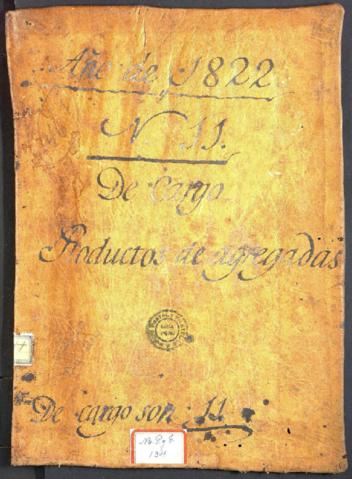 Año de 1822
N. 11.
De Cargo
Productos de agregadas
De cargo son 11